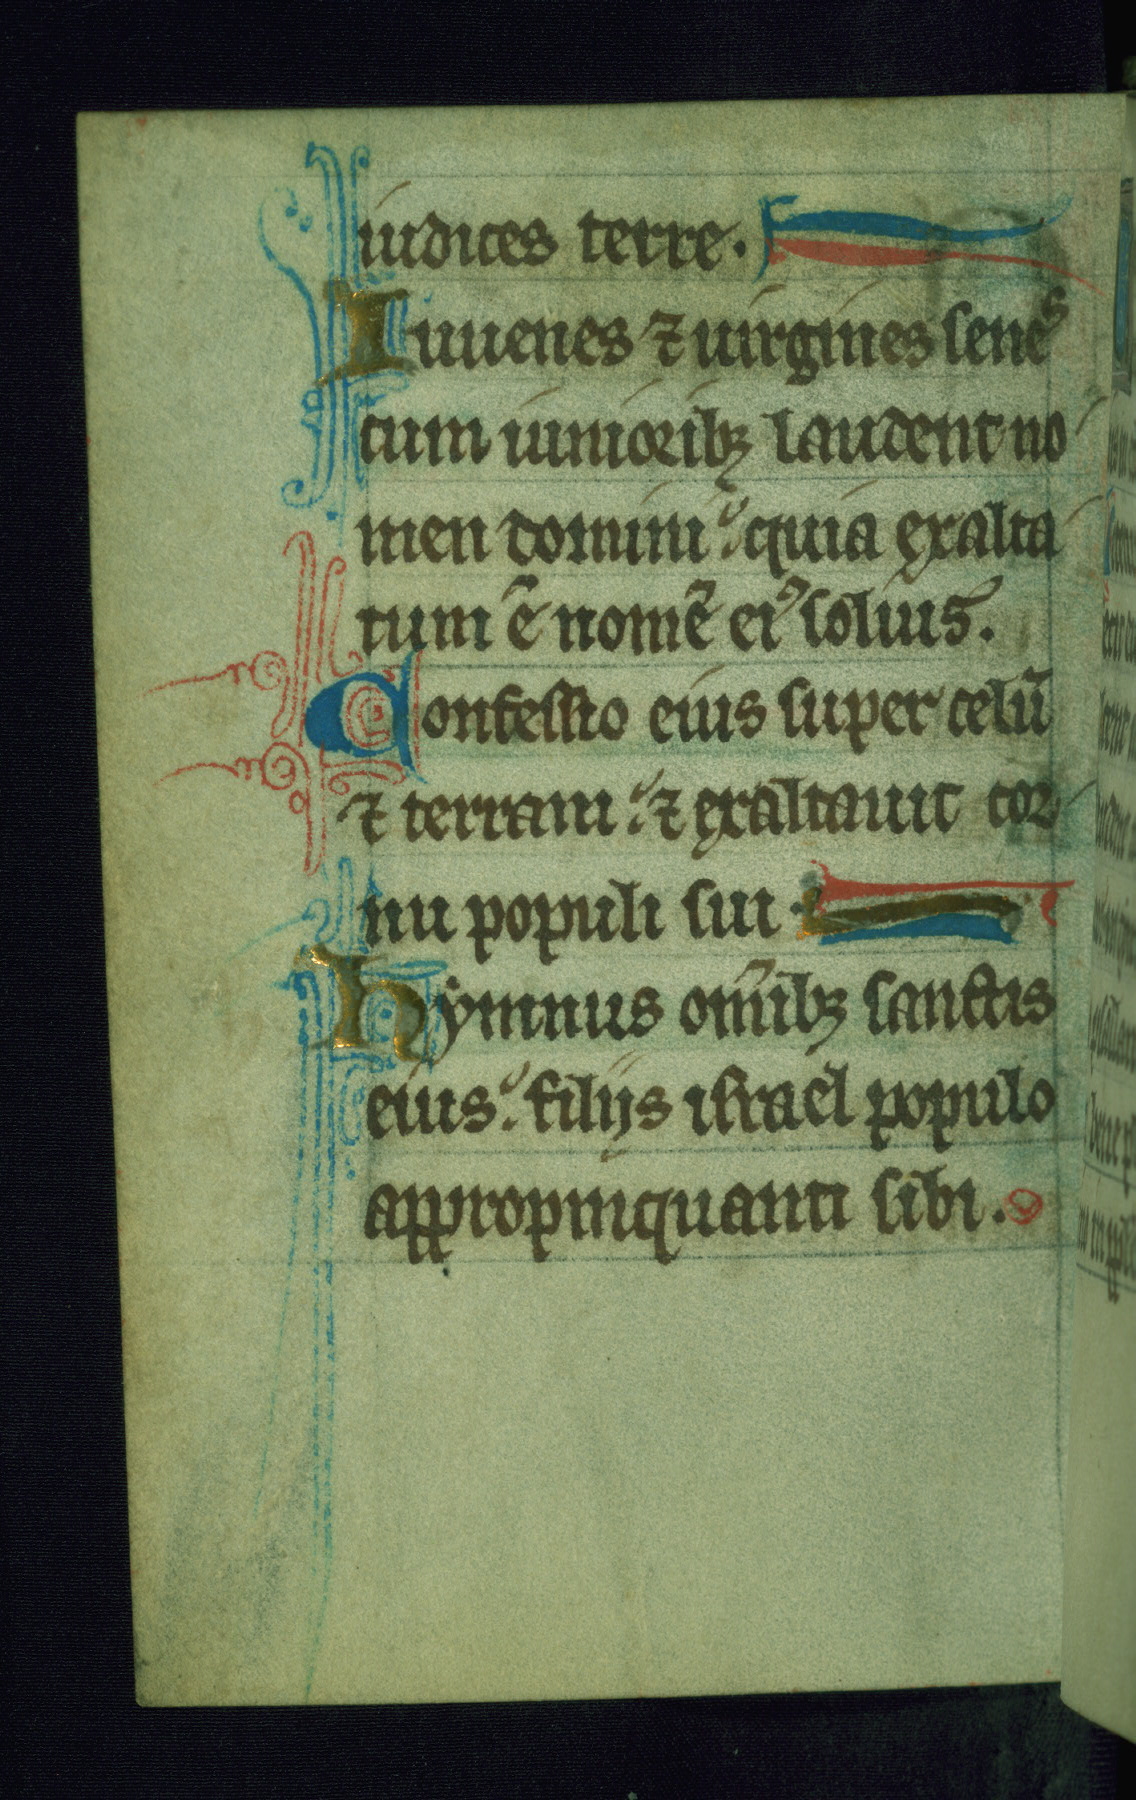 iudices terre.
Iuuenes ⁊ uirgines senes
cum iunioribꝫ laudent no
men domini: quia exalta
tum ē nomē eiꝰ solius.
Confessio eius super celū
⁊ terram: ⁊ exaltauit cor
nu populi sui.
hymnus om̄ibꝫ sanctis
eius: filijs israel populo
appropinquanti sibi.